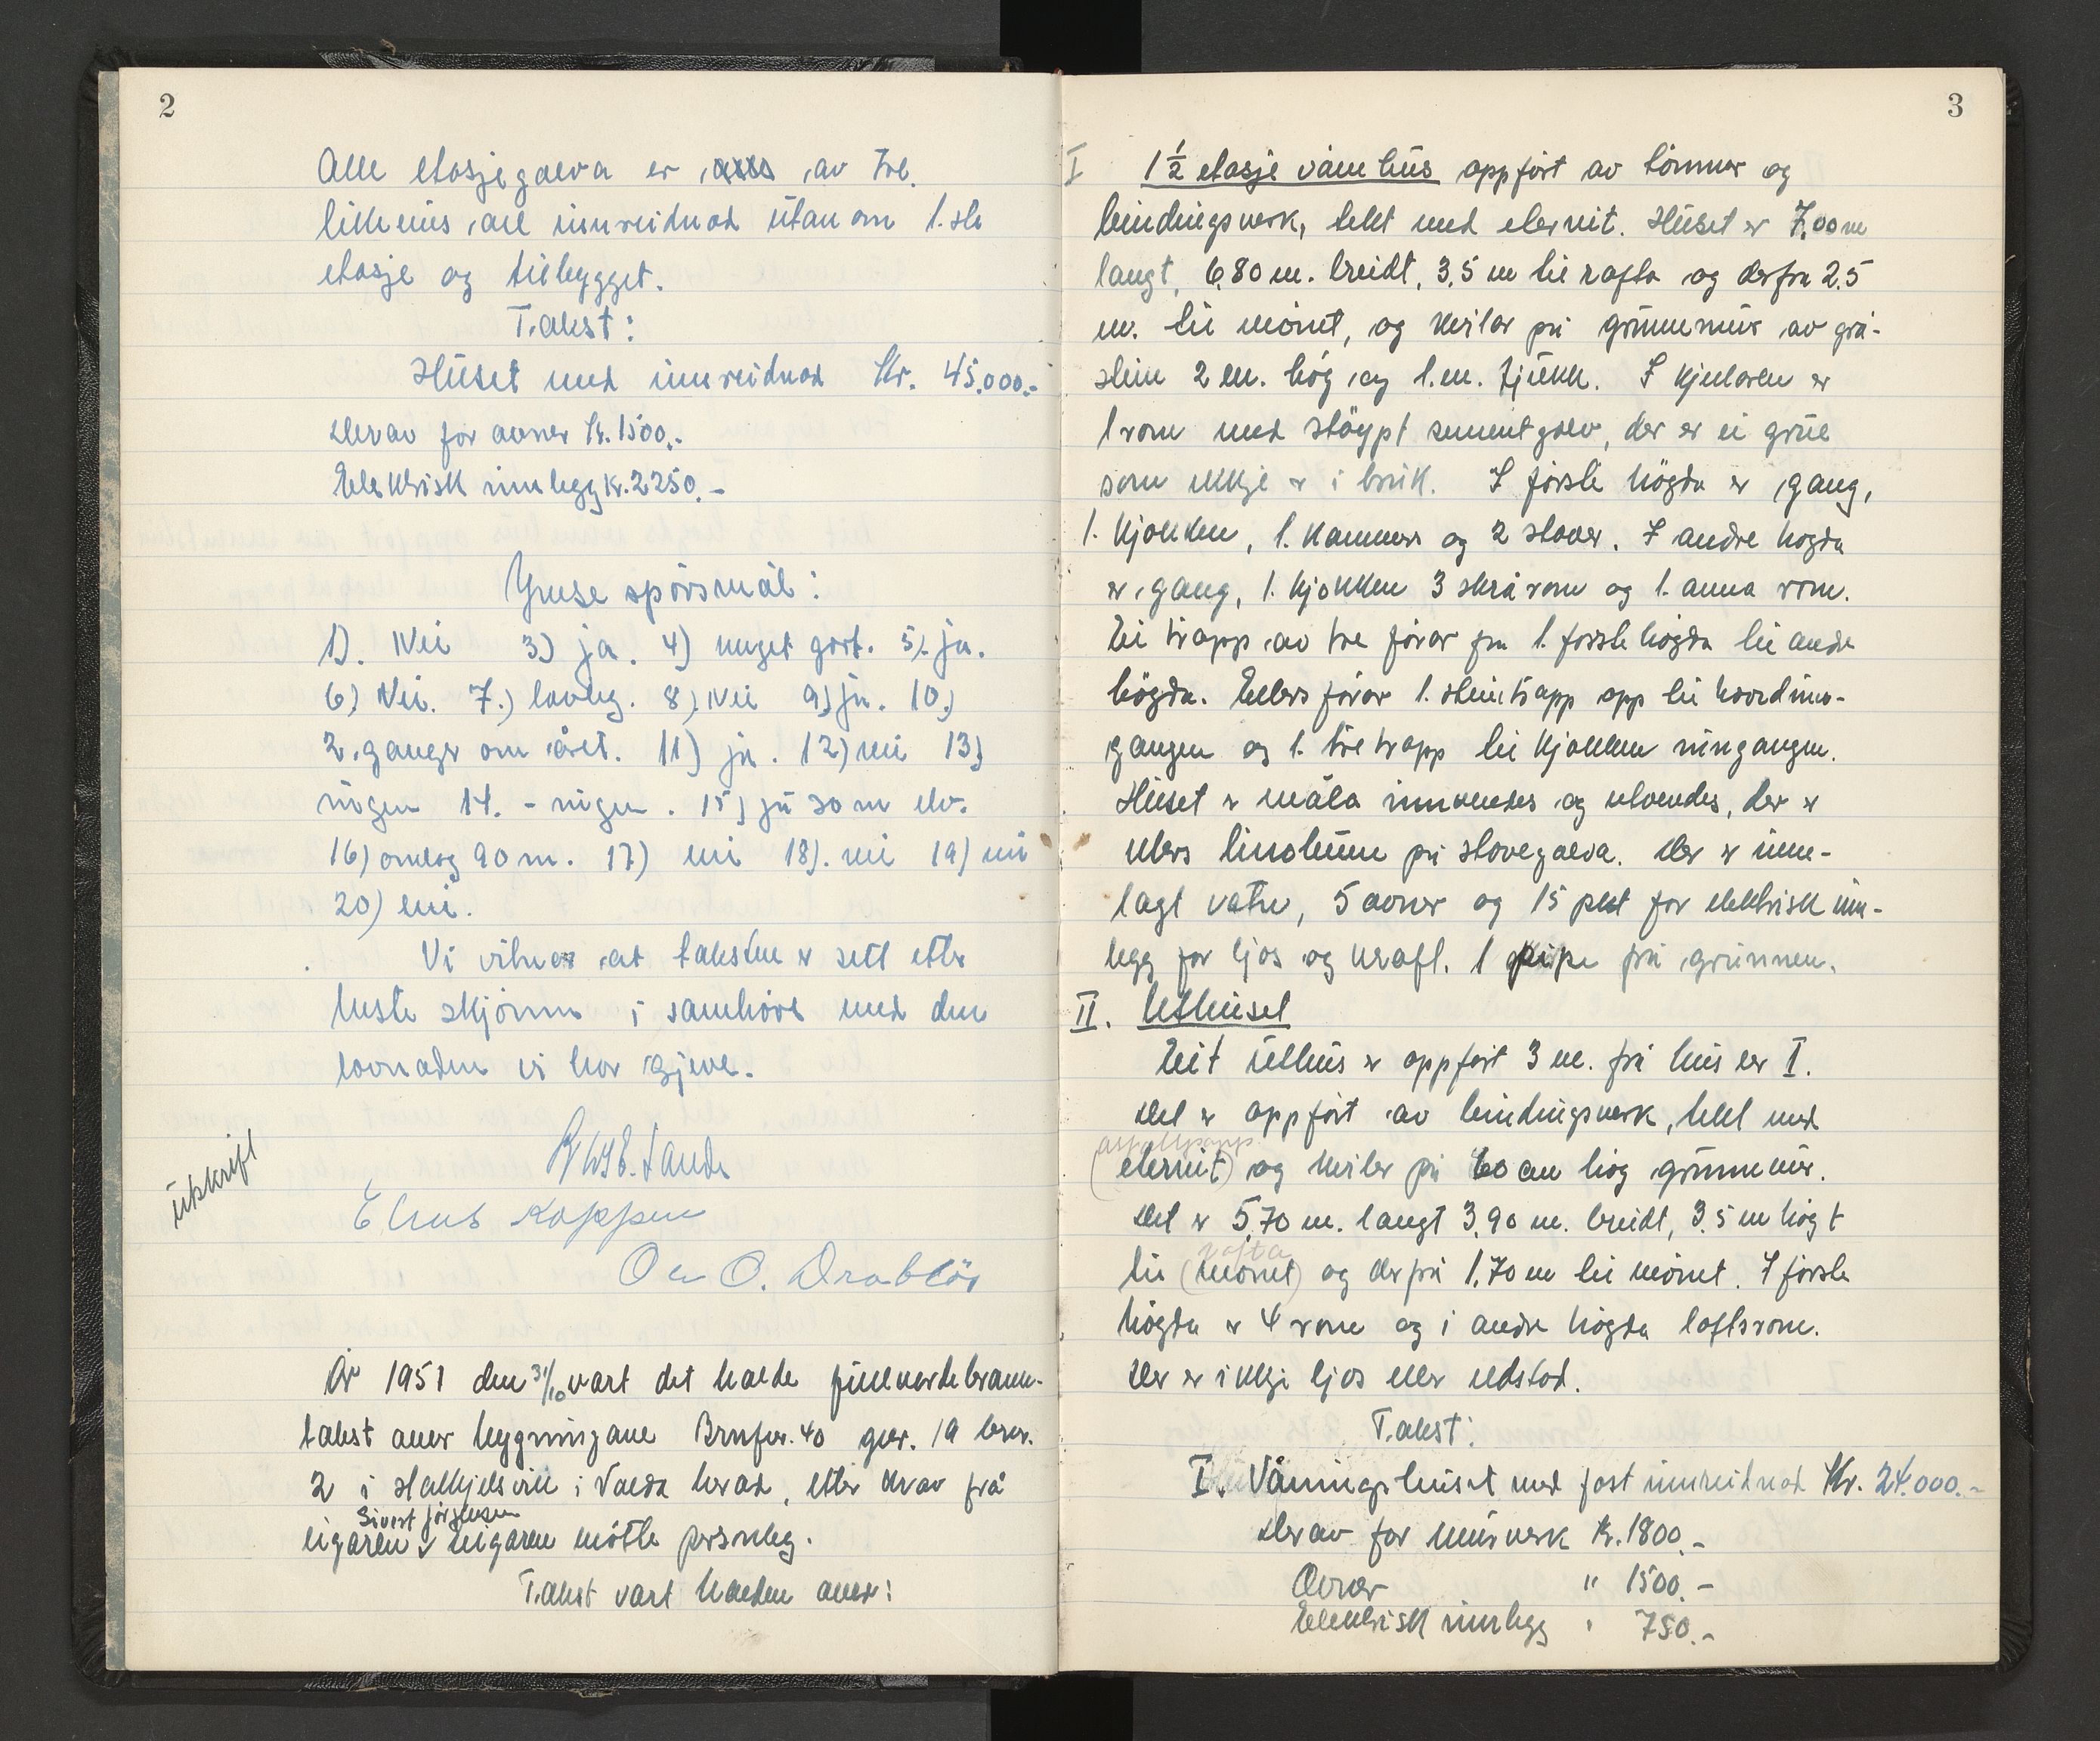 2
Alle etasjegolva er av tre.
likeeins all innreidnad utanom 1.ste
etasje og tilbygget.
Takst:
Huset med innreidnad Kr. 45.000.-
Derav for ovner kr. 1500.-
Elektrisk innlegg kr. 2250.-
Ymse spörsmål:
1). Nei 3) ja. 4) noget gort. 5). ja.
6) Nei. 7.) lovleg. 8) Nei 9) ja. 10.)
2 gangr om året. 11) ja. 12) nei 13)
ingen 14. - ingen. 15) ja 30 m elv.
16) omlag 90 m. 17) nei 18). nei 19) nei
20) nei.
Vi vitnar at taksten er sett etter
beste skjönn i samhöve med den
lovnaden vi har gjeve.
Sande
utskrift
Elias Koppen
Ole O. Drablös
År 1951 den 31/10 vart det halde fullverdebrann-
takst over bygningane Brnfnr. 40 gnr. 19 brnr.
2 i i herad, etter krav frå
Sivert Jörgensen
eigaren v eigaren mötte personleg.
Takst vart halden over:
3
I 1½ etasje vånehus oppfört av tömmer og
bindingsverk, tekt med eternit. Huset er 7,00 m
langt, 6,80 m. breidt, 3,5 m til rafta og derfra 2,5
m. til mönet, og kviler på grunnmur av grå-
stein 2 m. hög og 1. m. tjukk. I kjellaren er
1 rom med stöypt sementgolv, der er ei grue
som ikkje er i bruk. I förste högda er gang,
1. kjökken, 1. kammers og 2 stover. I andre högda
er gang, 1. kjökken 3 skrårom og 1. anna rom.
Ei trapp av tre förar fra 1. förste högda til andre
högda. Ellers förar 1. steintrapp opp til hovedinn-
gangen og 1. tretrapp til kjökken inngangen.
Huset er måla innvendes og utvendes, der er
ellers linoleum på stovegolva. Der er inne-
lagt vatn, 5 ovner og 15 pkt for elektrisk inn-
legg for ljos og kraft. 1 pipe frå grunnen.
II. Uthuset
Eit uthus er oppfört 3 m. frå hus lit I.
Det er oppfört av bindingsverk, tekt med
asfaltpapp
(eternit) og kviler på 60 cm hög grunnmur.
Det er 5,70 m. langt 3,90 m. breidt, 3,5 m högt
rafta
til (mönet) og derfrå 1,70 m til mönet. I förste
högda er 4 rom og i andre högda loftsrom.
Der er ikkje ljos eller eldstad.
Takst:
I. Våningshuset med fast innreidnad Kr. 24.000.-
Derav for murverk Kr. 1800.-
Ovner " 1500.-
Elektrisk innlegg " 750.-